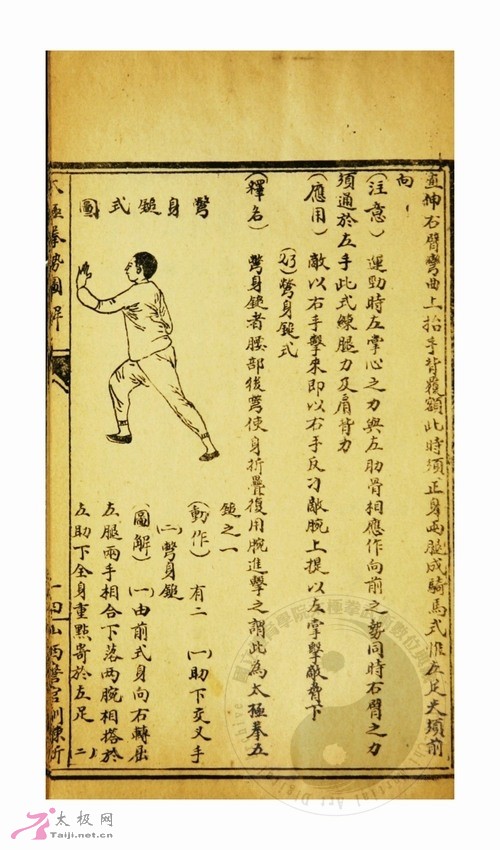 直伸右臂彎曲上抬手背覆額此時須正身兩腿成騎馬式惟左足尖須前
向
（注意）運勁時左掌心之力與左肋骨相應作向前之勢同時右臂之力
須通於左手此式練腿力及肩背力
（應用）敵以右手擊來即以右手反刁敵腕上提以左掌擊敵脅下
(23)彆身鎚式
（釋名）彆身鎚者腰部後彆使身折疊復用腕進擊之謂此為太極拳五
鎚之一
彆身鎚式圖
（動作）有二 (一)助下交叉手
(二)彆身鎚
（圖解）(一)由前式身向右轉屈
左腿兩手相合下落兩腕相搭於
左助下全身重點寄於左足 (二)
太極拳勢圖解
山西警官訓練所
太极网
Taiji.net.cn